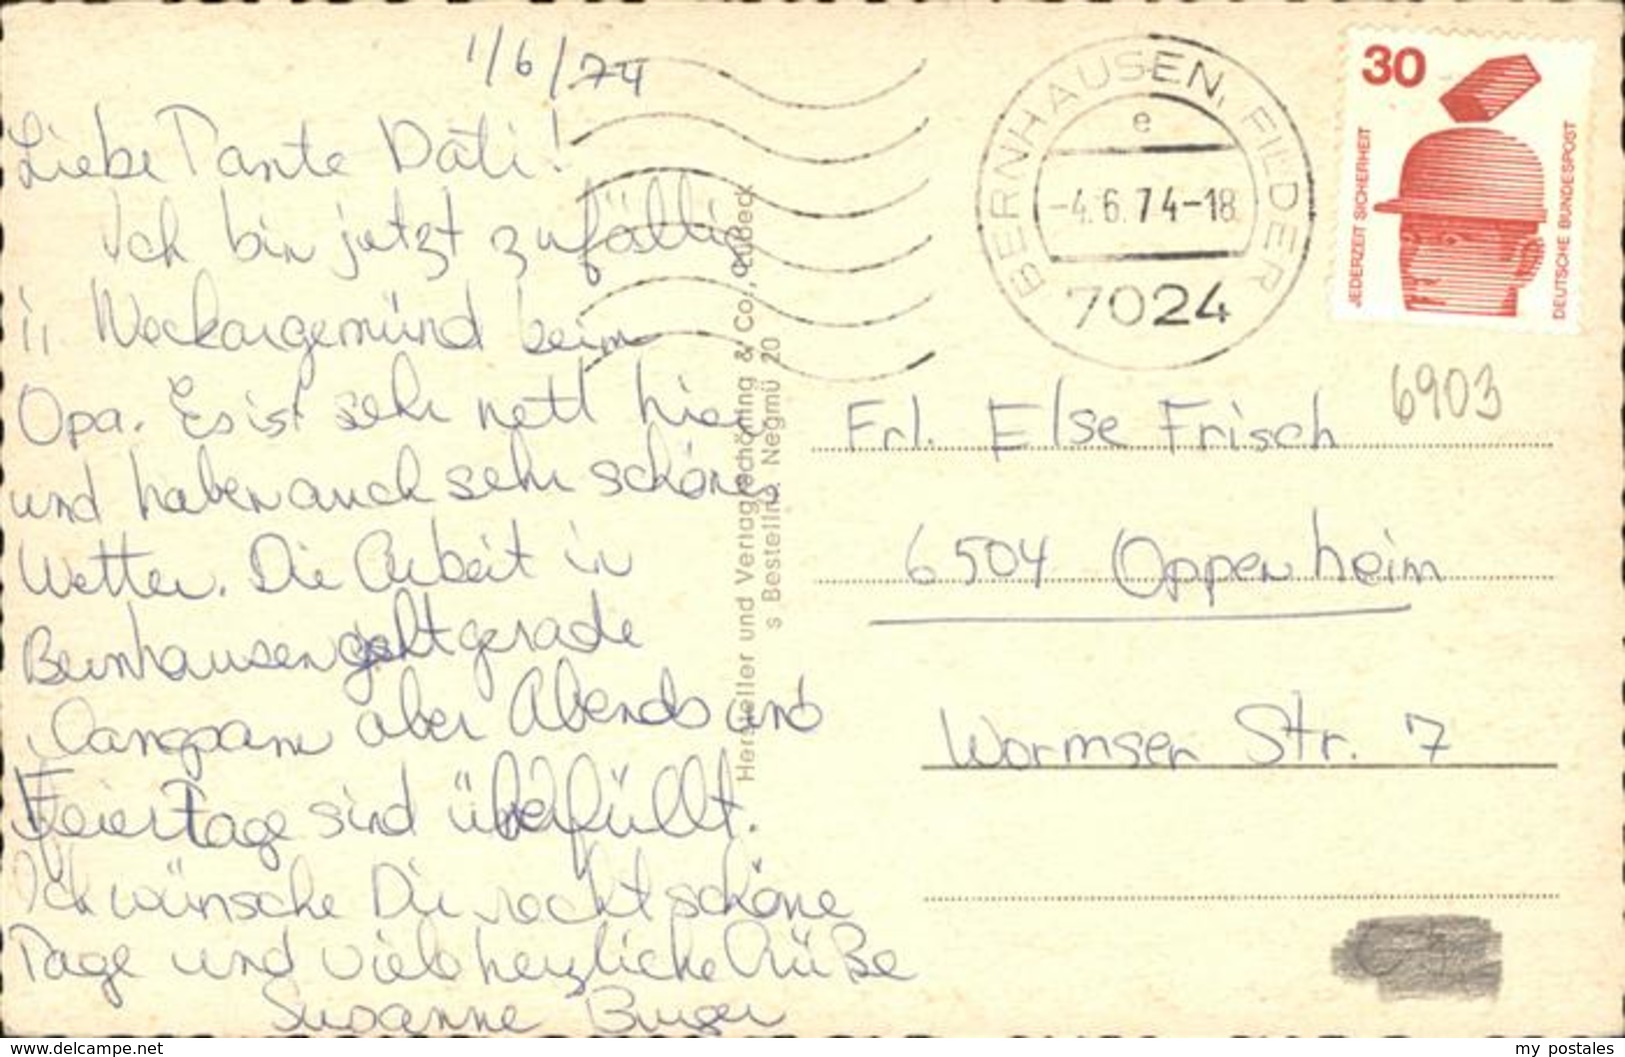 1/6/74
Liebe Tante Dati!
Ich bin jetzt zufällig
in Neckargemünd beim
Opa. Es ist sehr nett hier
und haben auch sehr schönes
Wetter. Die Arbeit in
Bernhausen geht gerade
langsam aber Abends und
Feiertage sind überfüllt.
Ich wünsche Dir recht schöne
Tage und viele herzliche Grüße
Susanne Burger
Hersteller und Verlag Schöning & Co., Lübeck
s Bestellnr. Negmü 20
BERNHAUSEN, FILDER
e
-4.6.74-18
7024
30
JEDERZEIT SICHERHEIT
DEUTSCHE BUNDESPOST
6903
Frl. Else Frisch
6504 Oppenheim
Wormser Str. 7
www.delcampe.net
my_postales